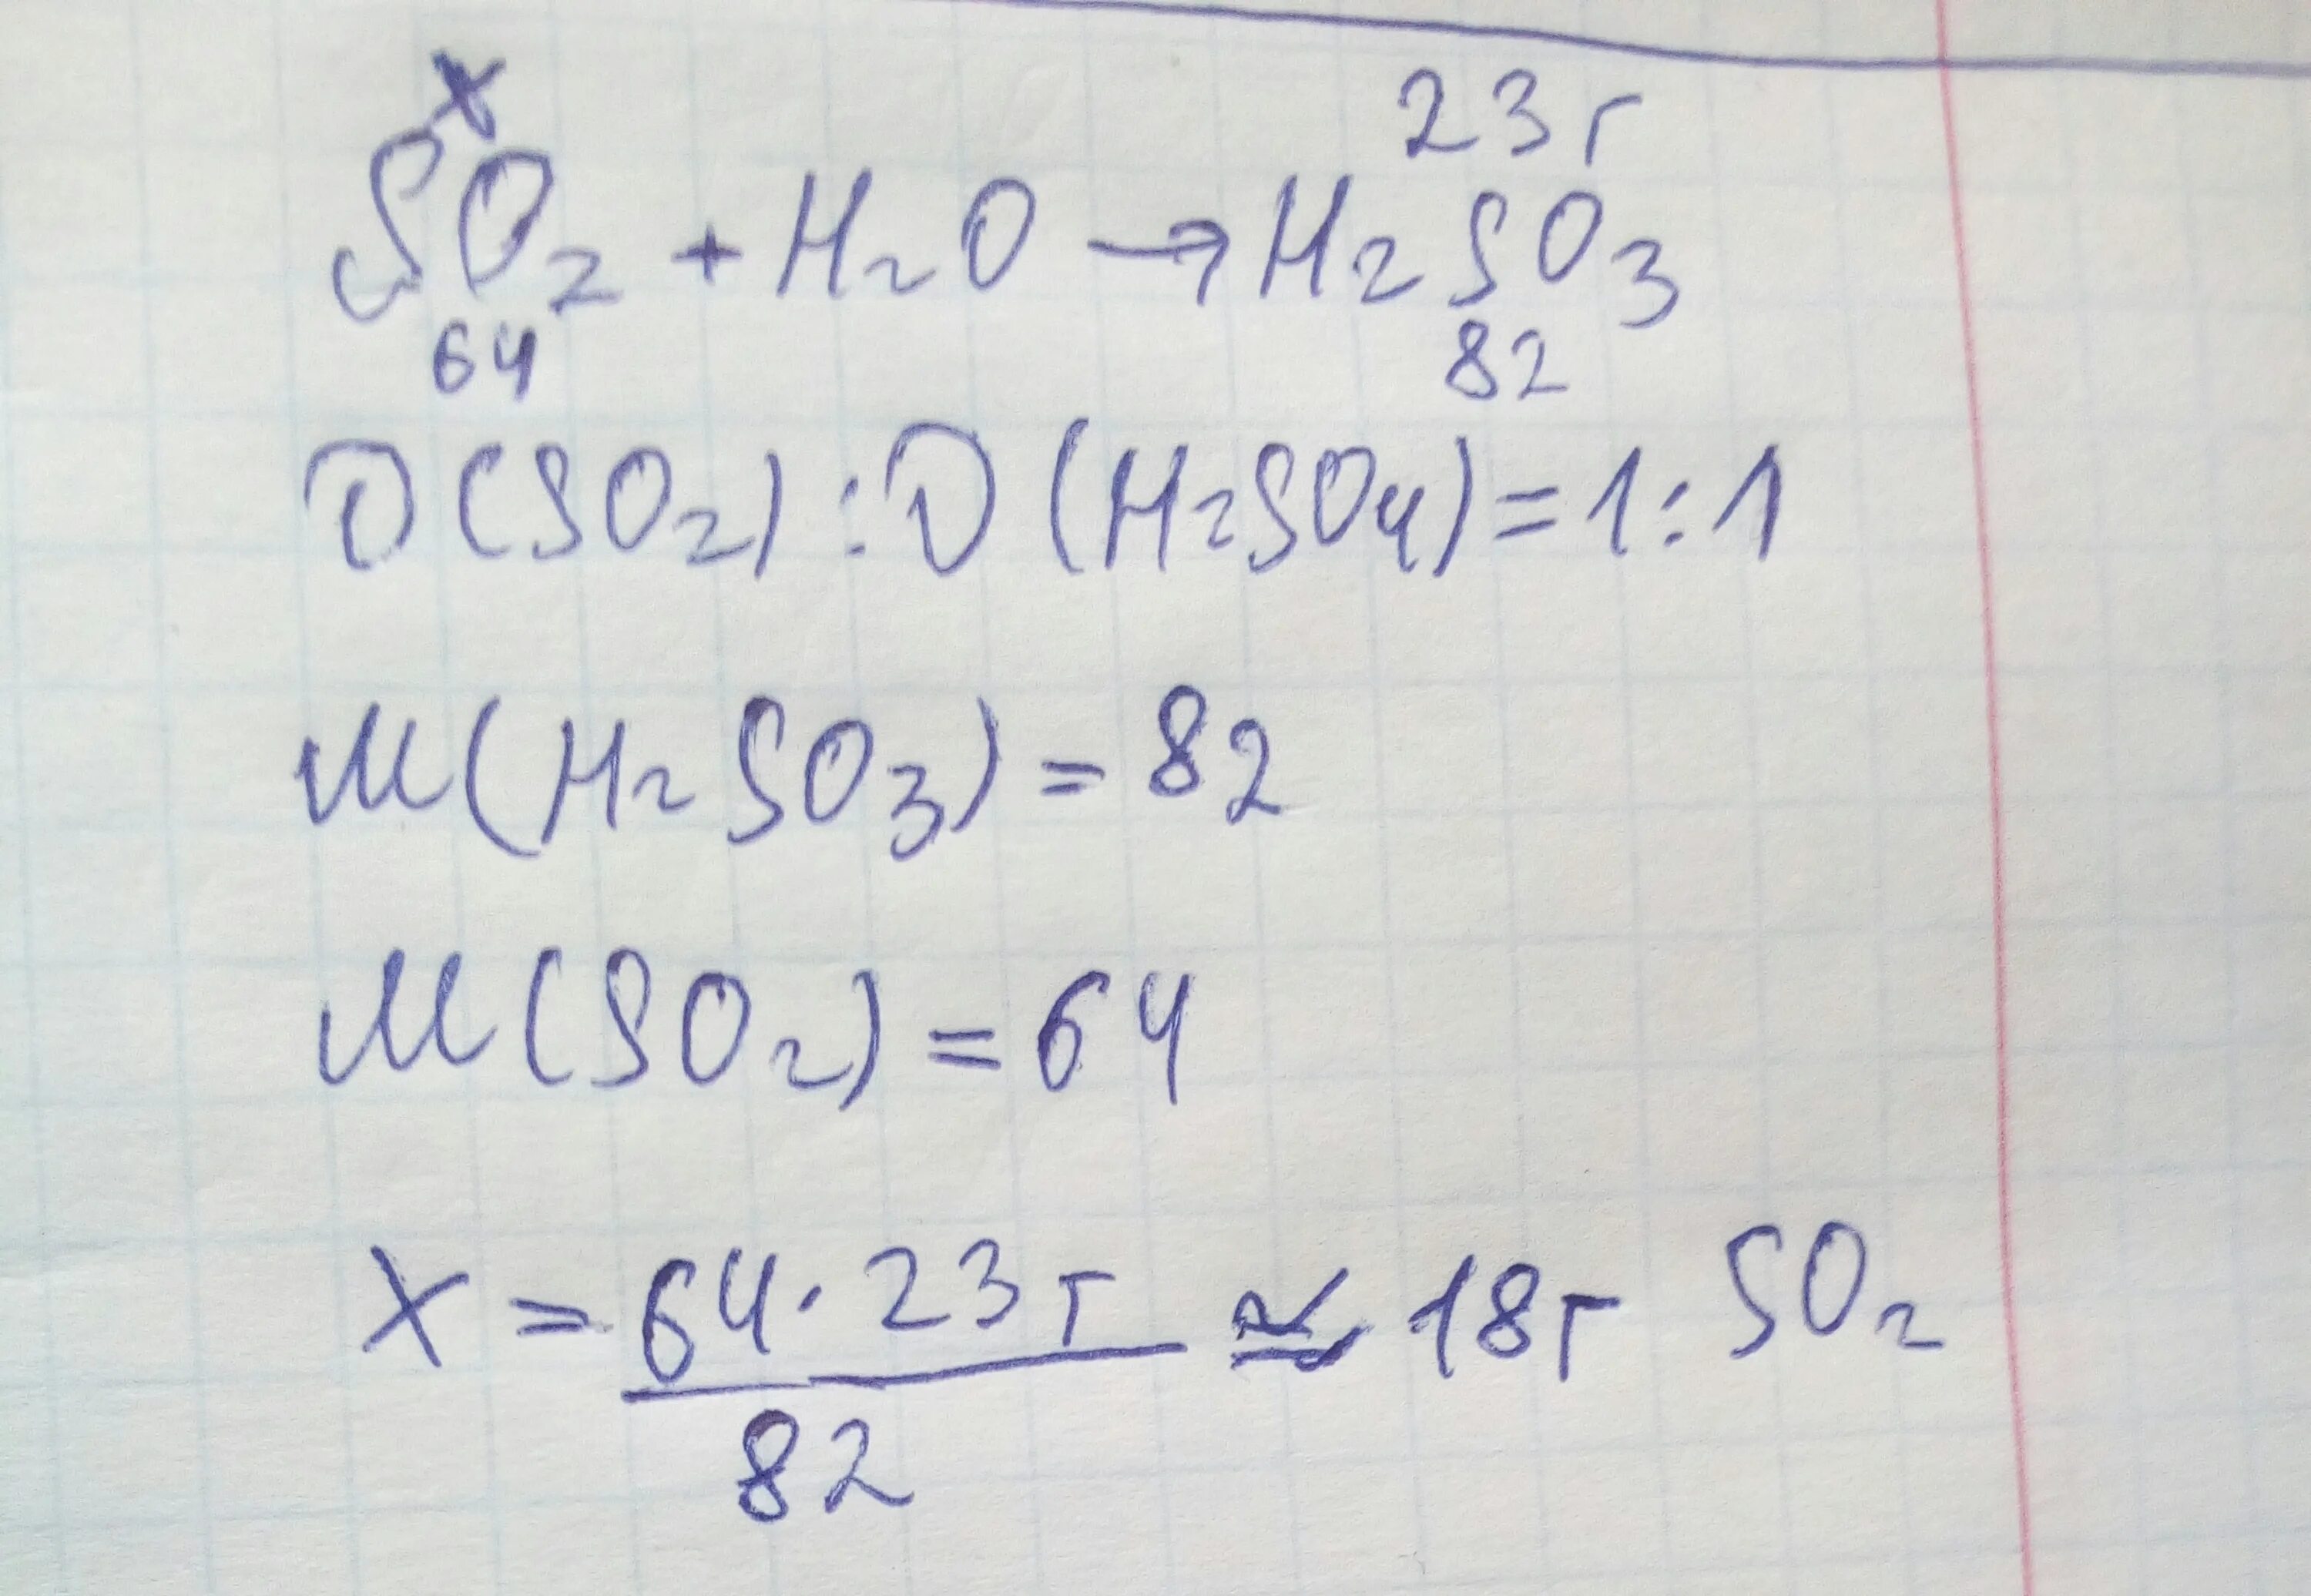 x 23г
SO2 + H2O → H2SO3
64 82
D(SO2) : D(H2SO4) = 1:1
M(H2SO3) = 82
M(SO2) = 64
X = 64 · 23г ≅ 18г SO2
82